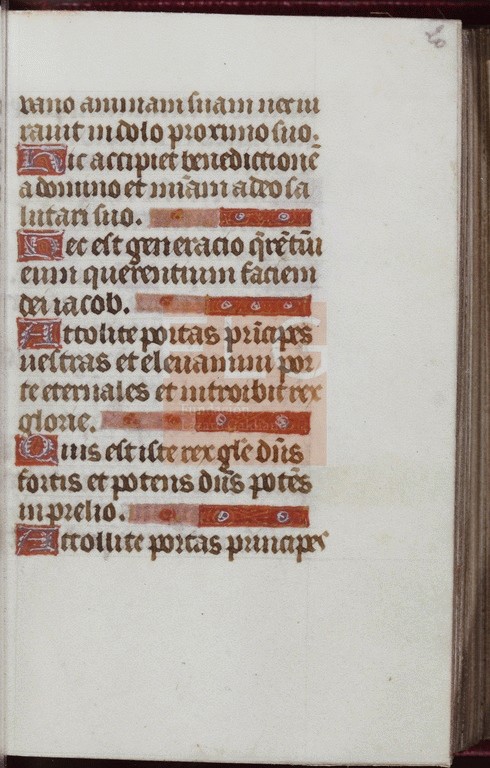 20
vano animam suam nec iu
ravit in dolo proximo suo.
Hic accipiet benedictionē
a domino et mīam a deo sa
lutari suo.
Hec est generacio q̄rētiū
eum querentium faciem
dei iacob.
Attolite portas prīcipes
vestras et elevamini por
te eternales et introibit rex
glorie.
Quis est iste rex gle dūs
fortis et potens dūs potēs
in prelio.
Attollite portas principes